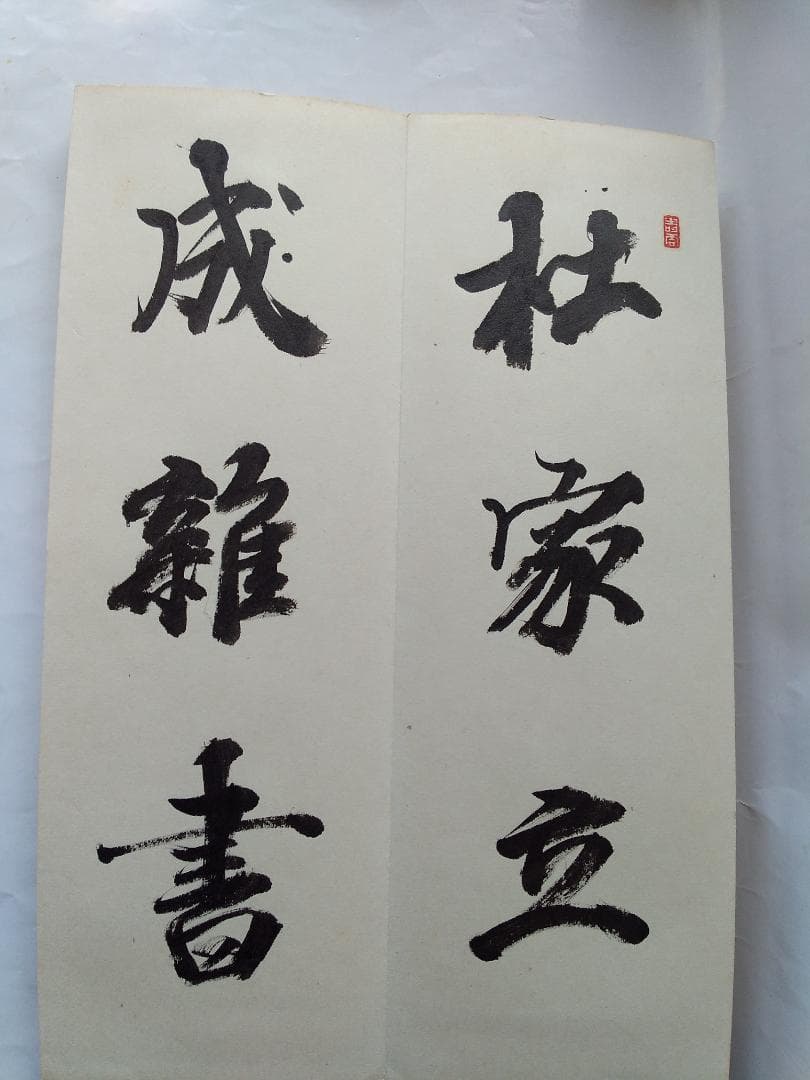 杜家立
成雜書